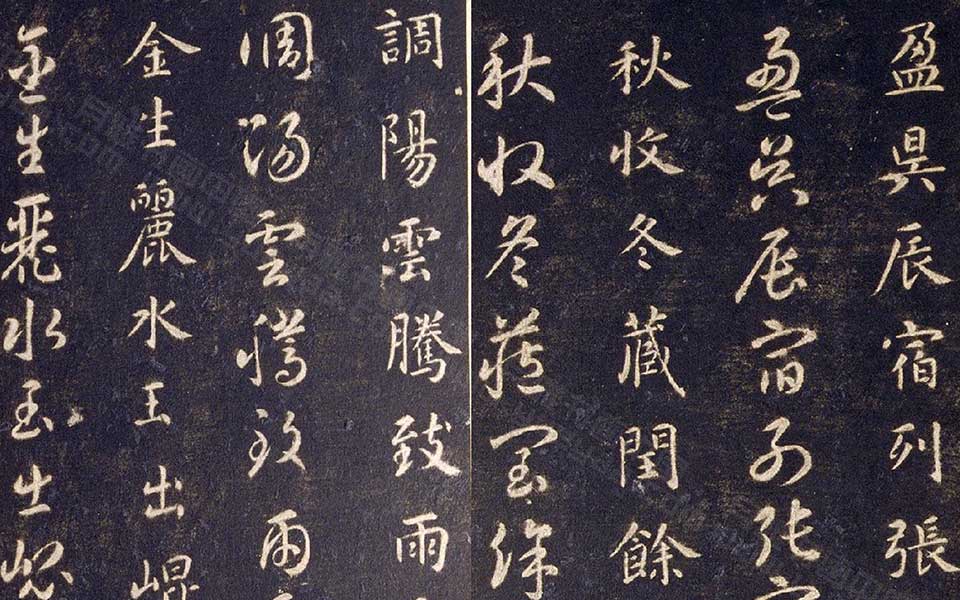 盈昃辰宿列張
盈昃辰宿列張
秋收冬藏閏餘
秋收冬藏閏餘
調陽雲騰致雨
調陽雲騰致雨
金生麗水玉出崐
金生麗水玉出崐